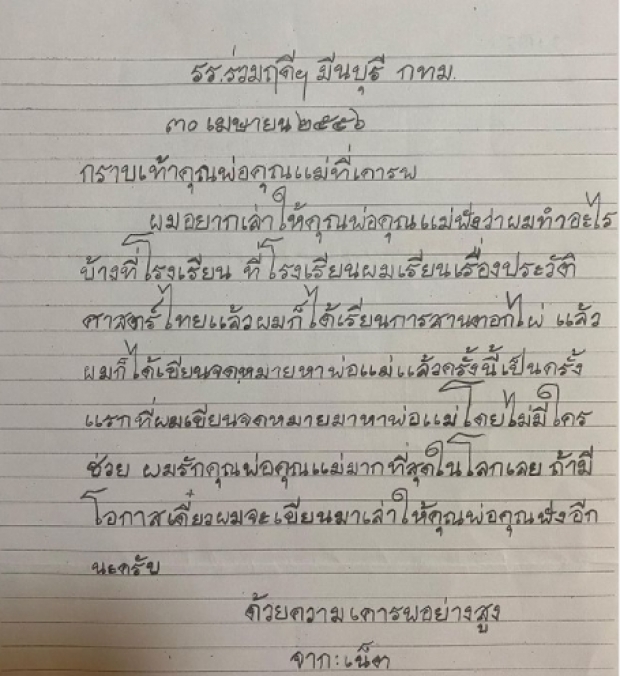 รร.ร่วมฤดีฯ มีนบุรี กทม.
๓๐ เมษายน ๒๕๕๖
กราบเท้าคุณพ่อคุณแม่ที่เคารพ
ผมอยากเล่าให้คุณพ่อคุณแม่ฟังว่าผมทำอะไร
บ้างที่โรงเรียน ที่โรงเรียนผมเรียนเรื่องประวัติ
ศาสตร์ไทยแล้วผมก็ได้เรียนการสานตอกไผ่ แล้ว
ผมก็ได้เขียนจดหมายหาพ่อแม่แล้วครั้งนี้เป็นครั้ง
แรกที่ผมเขียนจดหมายมาหาพ่อแม่โดยไม่มีใคร
ช่วย ผมรักคุณพ่อคุณแม่มากที่สุดในโลกเลย ถ้ามี
โอกาสเดี๋ยวผมจะเขียนมาเล่าให้คุณพ่อคุณฟังอีก
นะครับ
ด้วยความเคารพอย่างสูง
จาก:เน็ต